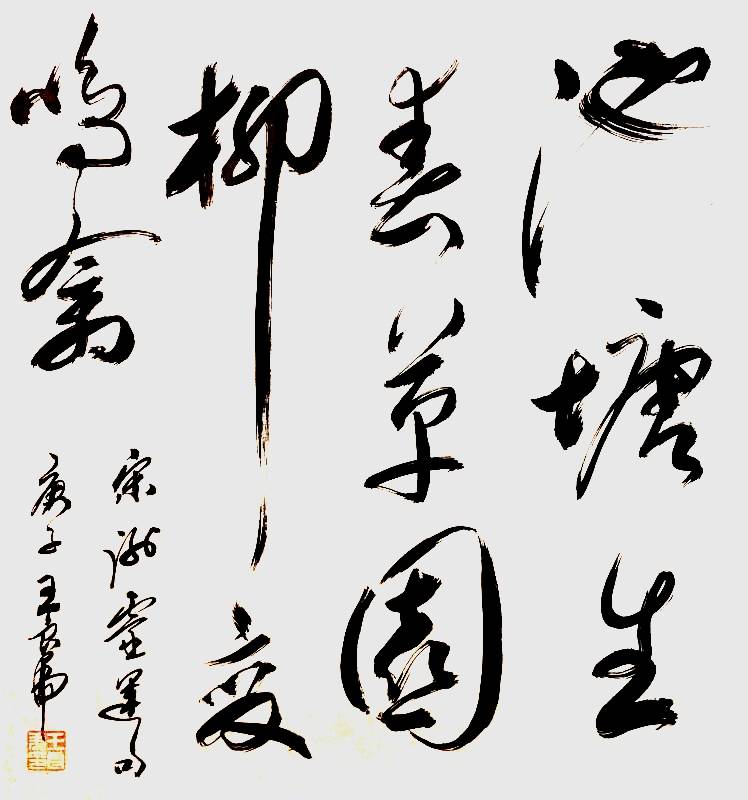 池塘生
春草園
柳变
鳴禽
宋谢靈運句
庚子王